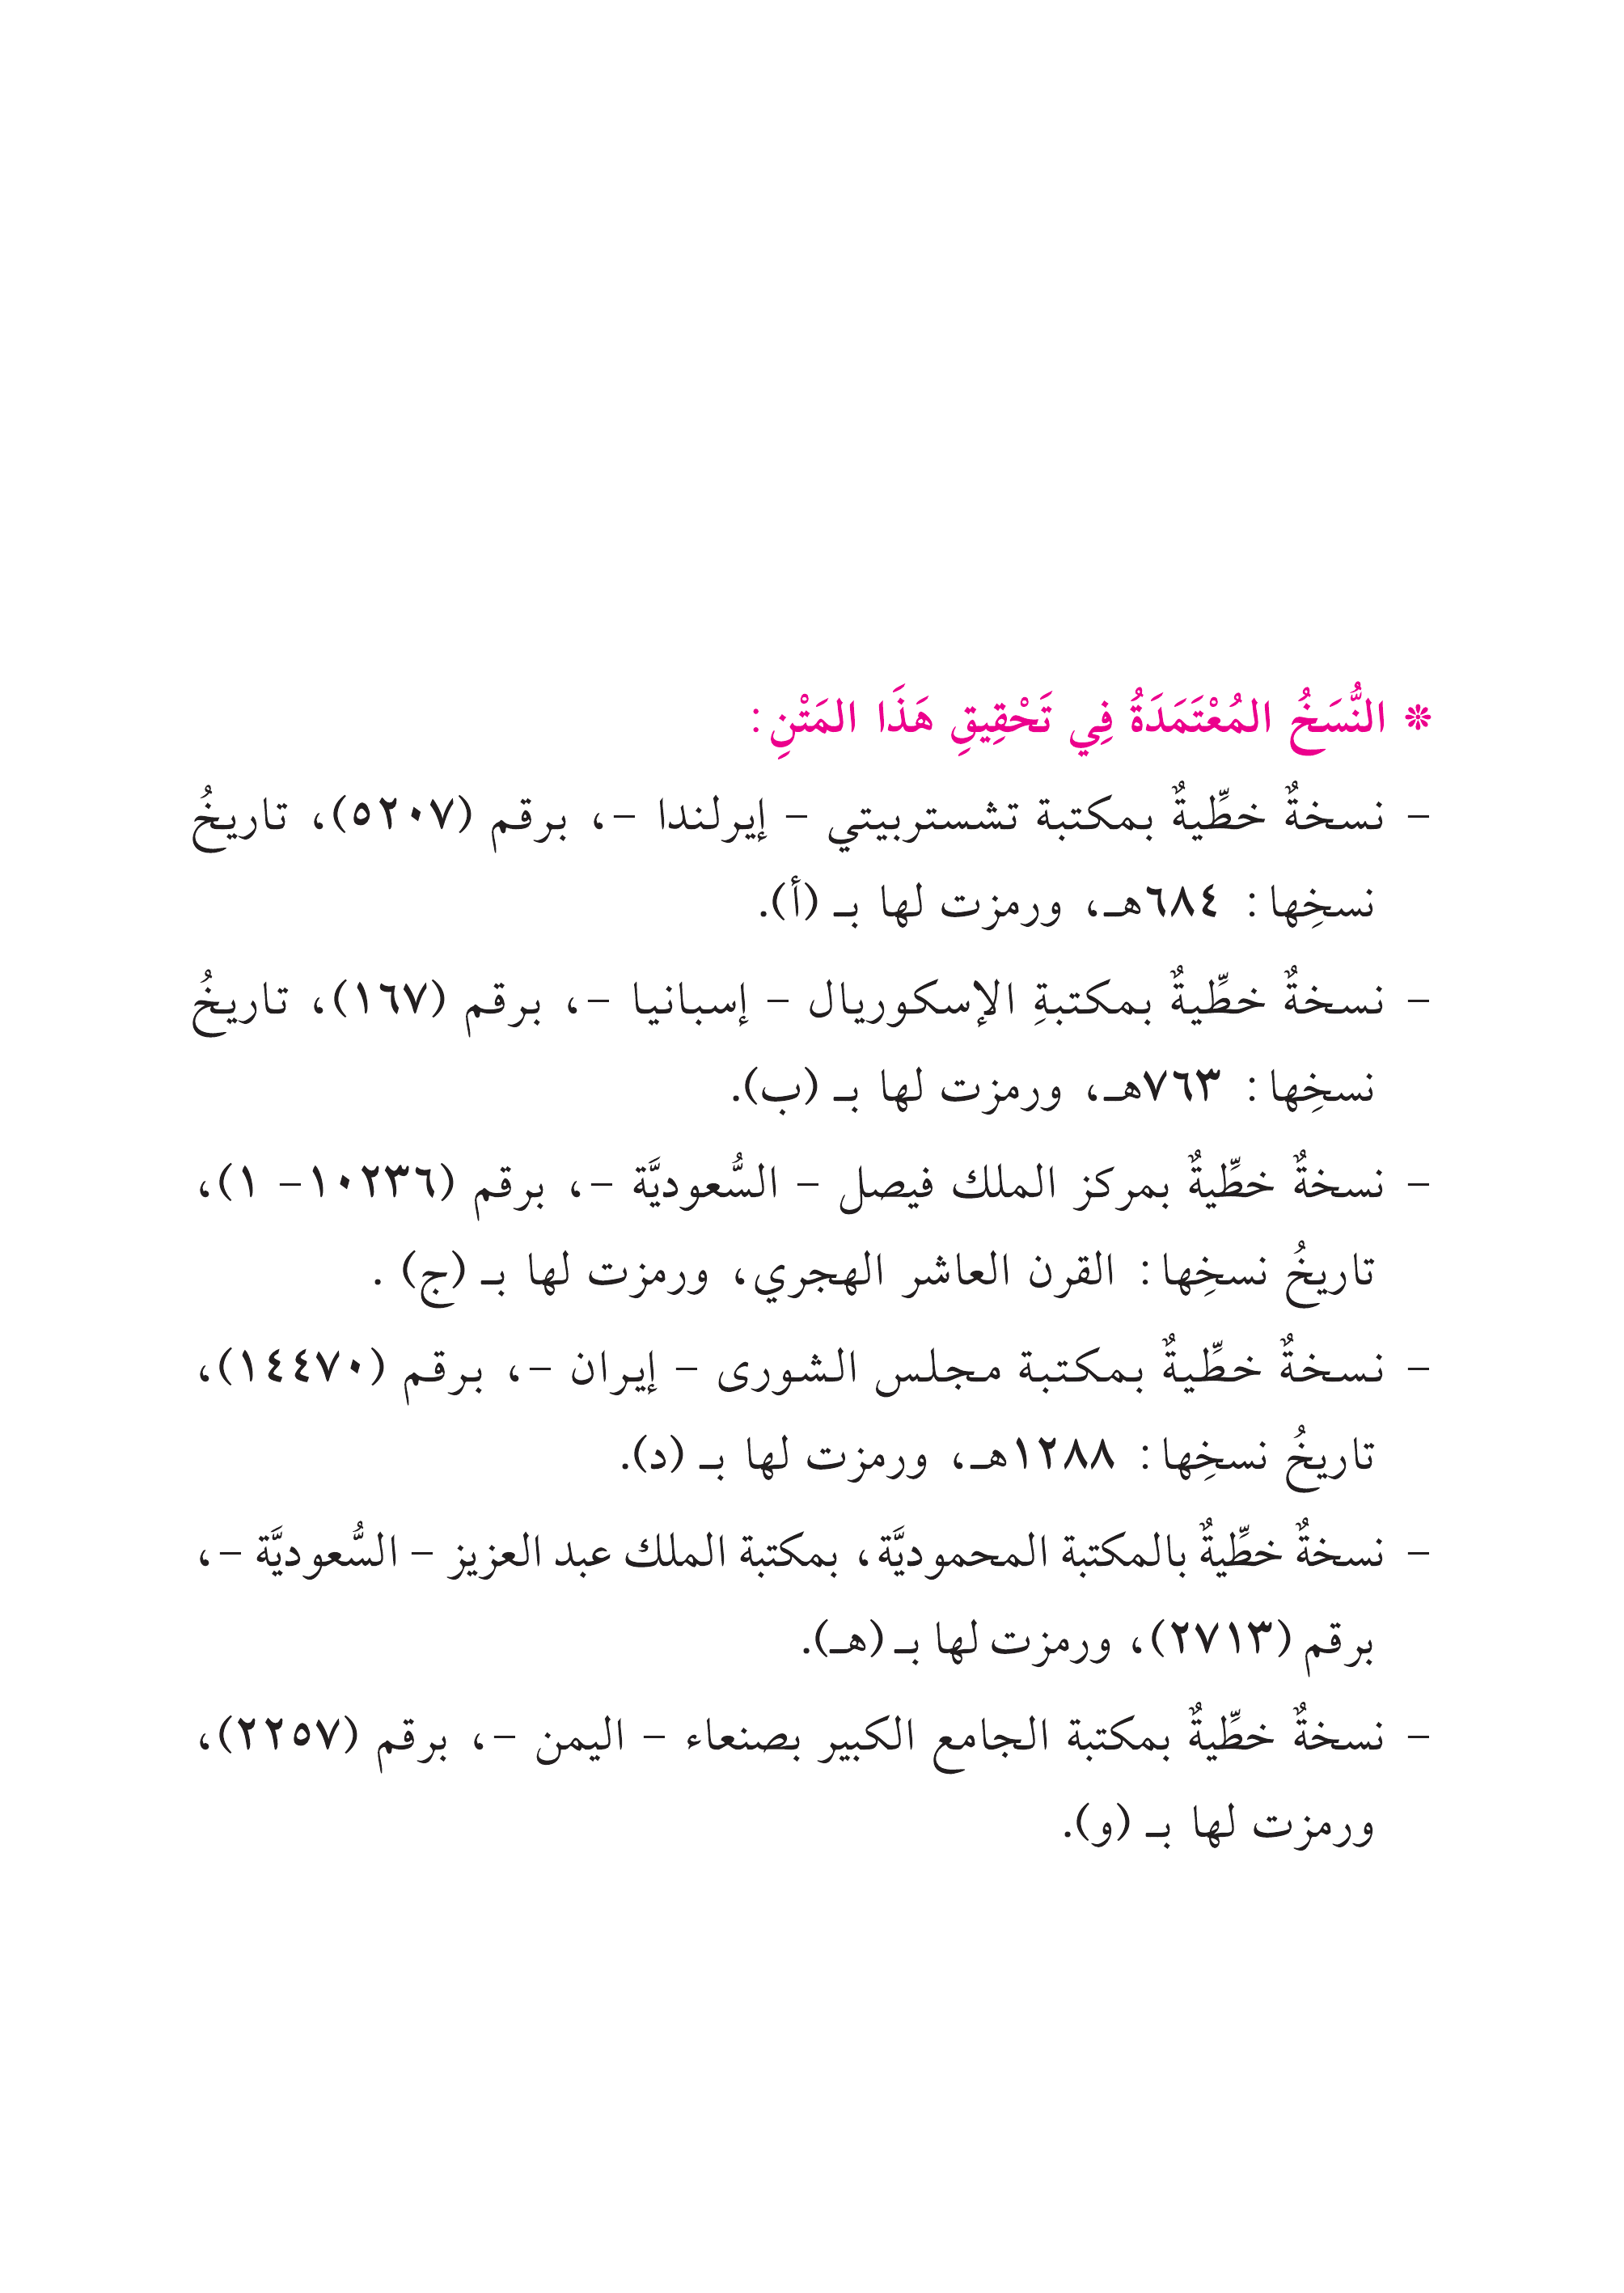 * النُّسَخُ المُعْتَمَدَةُ فِي تَحْقِيقِ هَذَا المَتْنِ:
- نسخةٌ خطِّيةٌ بمكتبة تشستربيتي - إيرلندا -، برقم (٥٢٠٧)، تاريخُ
نسخِها: ٦٨٤هـ، ورمزت لها بـ (أ).
- نسخةٌ خطِّيةٌ بمكتبةِ الإسكوريال - إسبانيا -، برقم (١٦٧)، تاريخُ
نسخِها: ٧٦٣هـ، ورمزت لها بـ (ب).
- نسخةٌ خطِّيةٌ بمركز الملك فيصل - السُّعوديَّة -، برقم (١٠٢٣٦- ١)،
تاريخُ نسخِها: القرن العاشر الهجري، ورمزت لها بـ (ج) .
- نسخةٌ خطِّيةٌ بمكتبة مجلس الشورى - إيران -، برقم (١٤٤٧٠)،
تاريخُ نسخِها: ١٢٨٨هـ، ورمزت لها بـ (د).
- نسخةٌ خطِّيةٌ بالمكتبة المحموديَّة، بمكتبة الملك عبد العزيز - السُّعوديَّة -،
برقم (٢٧١٣)، ورمزت لها بـ (هـ).
- نسخةٌ خطِّيةٌ بمكتبة الجامع الكبير بصنعاء - اليمن -، برقم (٢٢٥٧)،
ورمزت لها بـ (و).